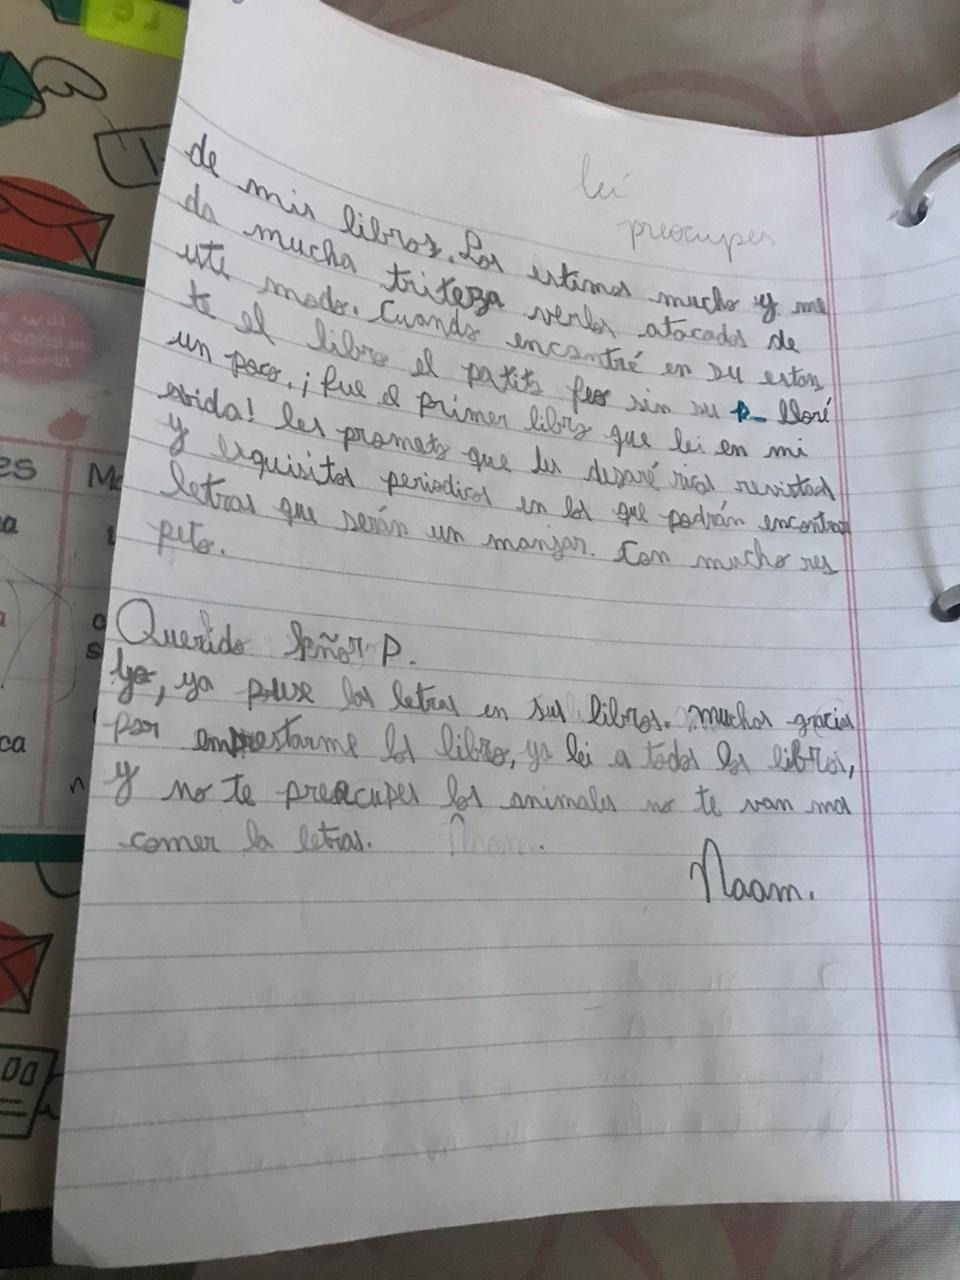 lei
preocupes
de mis libros. Los estimos mucho y me
da mucha triteza verlos atacados de
este modo. Cuando encontré en su estan
te el libro el patito feo sin su p_ lloré
un poco. ¡fue el primer libro que lei en mi
vida! les prometo que les dejaré ricos, revistas
y exquisitos periodicos en los que podrán encontrar
letras que serán un manjar. Con mucho res
peto.
Querido Señor P.
Yo, ya puse las letras en sus libros. muchas gracias
por emprestarme los libro, ya lei a todos los libros,
y no te preocupes los animales no te van mas
comer la letras.
Naam.
Naam.
es
a
ca